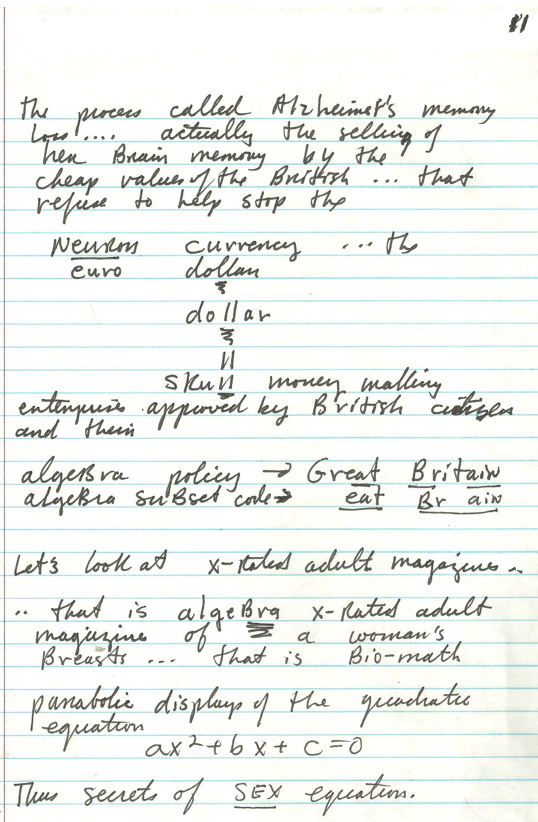 11
the process called Alzheimer's memory
loss.... actually the selling of
her Brain memory by the
cheap values of the British ... that
refuse to help stop the
Neurons currency ... the
euro dollar
dollar
ll
skull money making
enterprise approved by British
and their
algeBra policy → Great Britain
algeBra suBset code → eat Br ain
Let's look at x-Rated adult magazines..
.. that is algeBra x-Rated adult
magazine of a woman's
Breasts ... that is Bio-math
parabolic displays of the quadratic
equation
ax²+bx+c=0
Thus secrets of SEX equation.